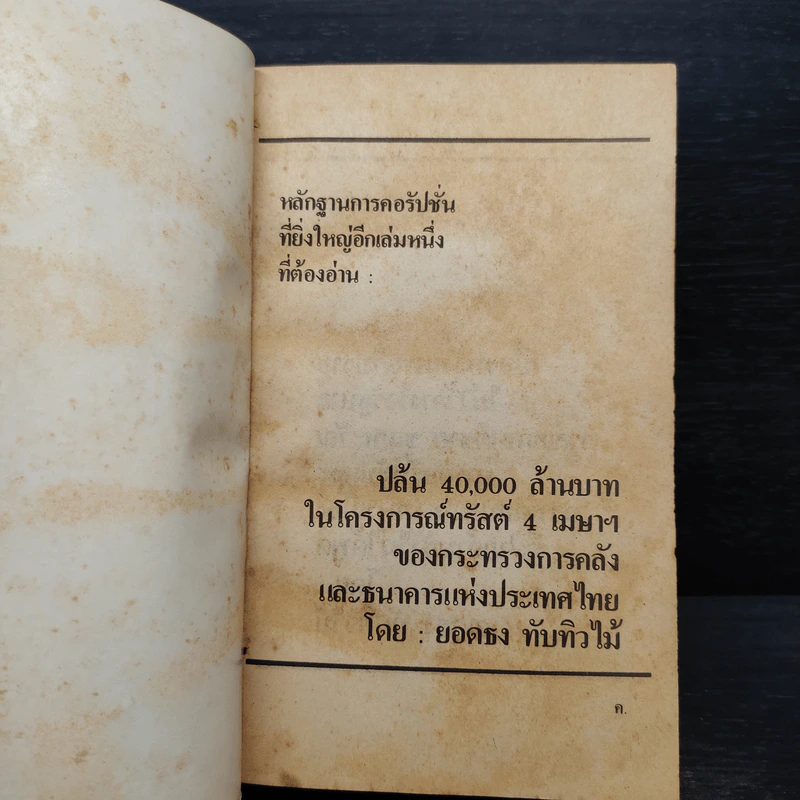 หลักฐานการคอรัปชั่น
ที่ยิ่งใหญ่อีกเล่มหนึ่ง
ที่ต้องอ่าน :
ปล้น 40,000 ล้านบาท
ในโครงการณ์ทรัสต์ 4 เมษาฯ
ของกระทรวงการคลัง
และธนาคารแห่งประเทศไทย
โดย : ยอดธง ทับทิวไม้
ค.